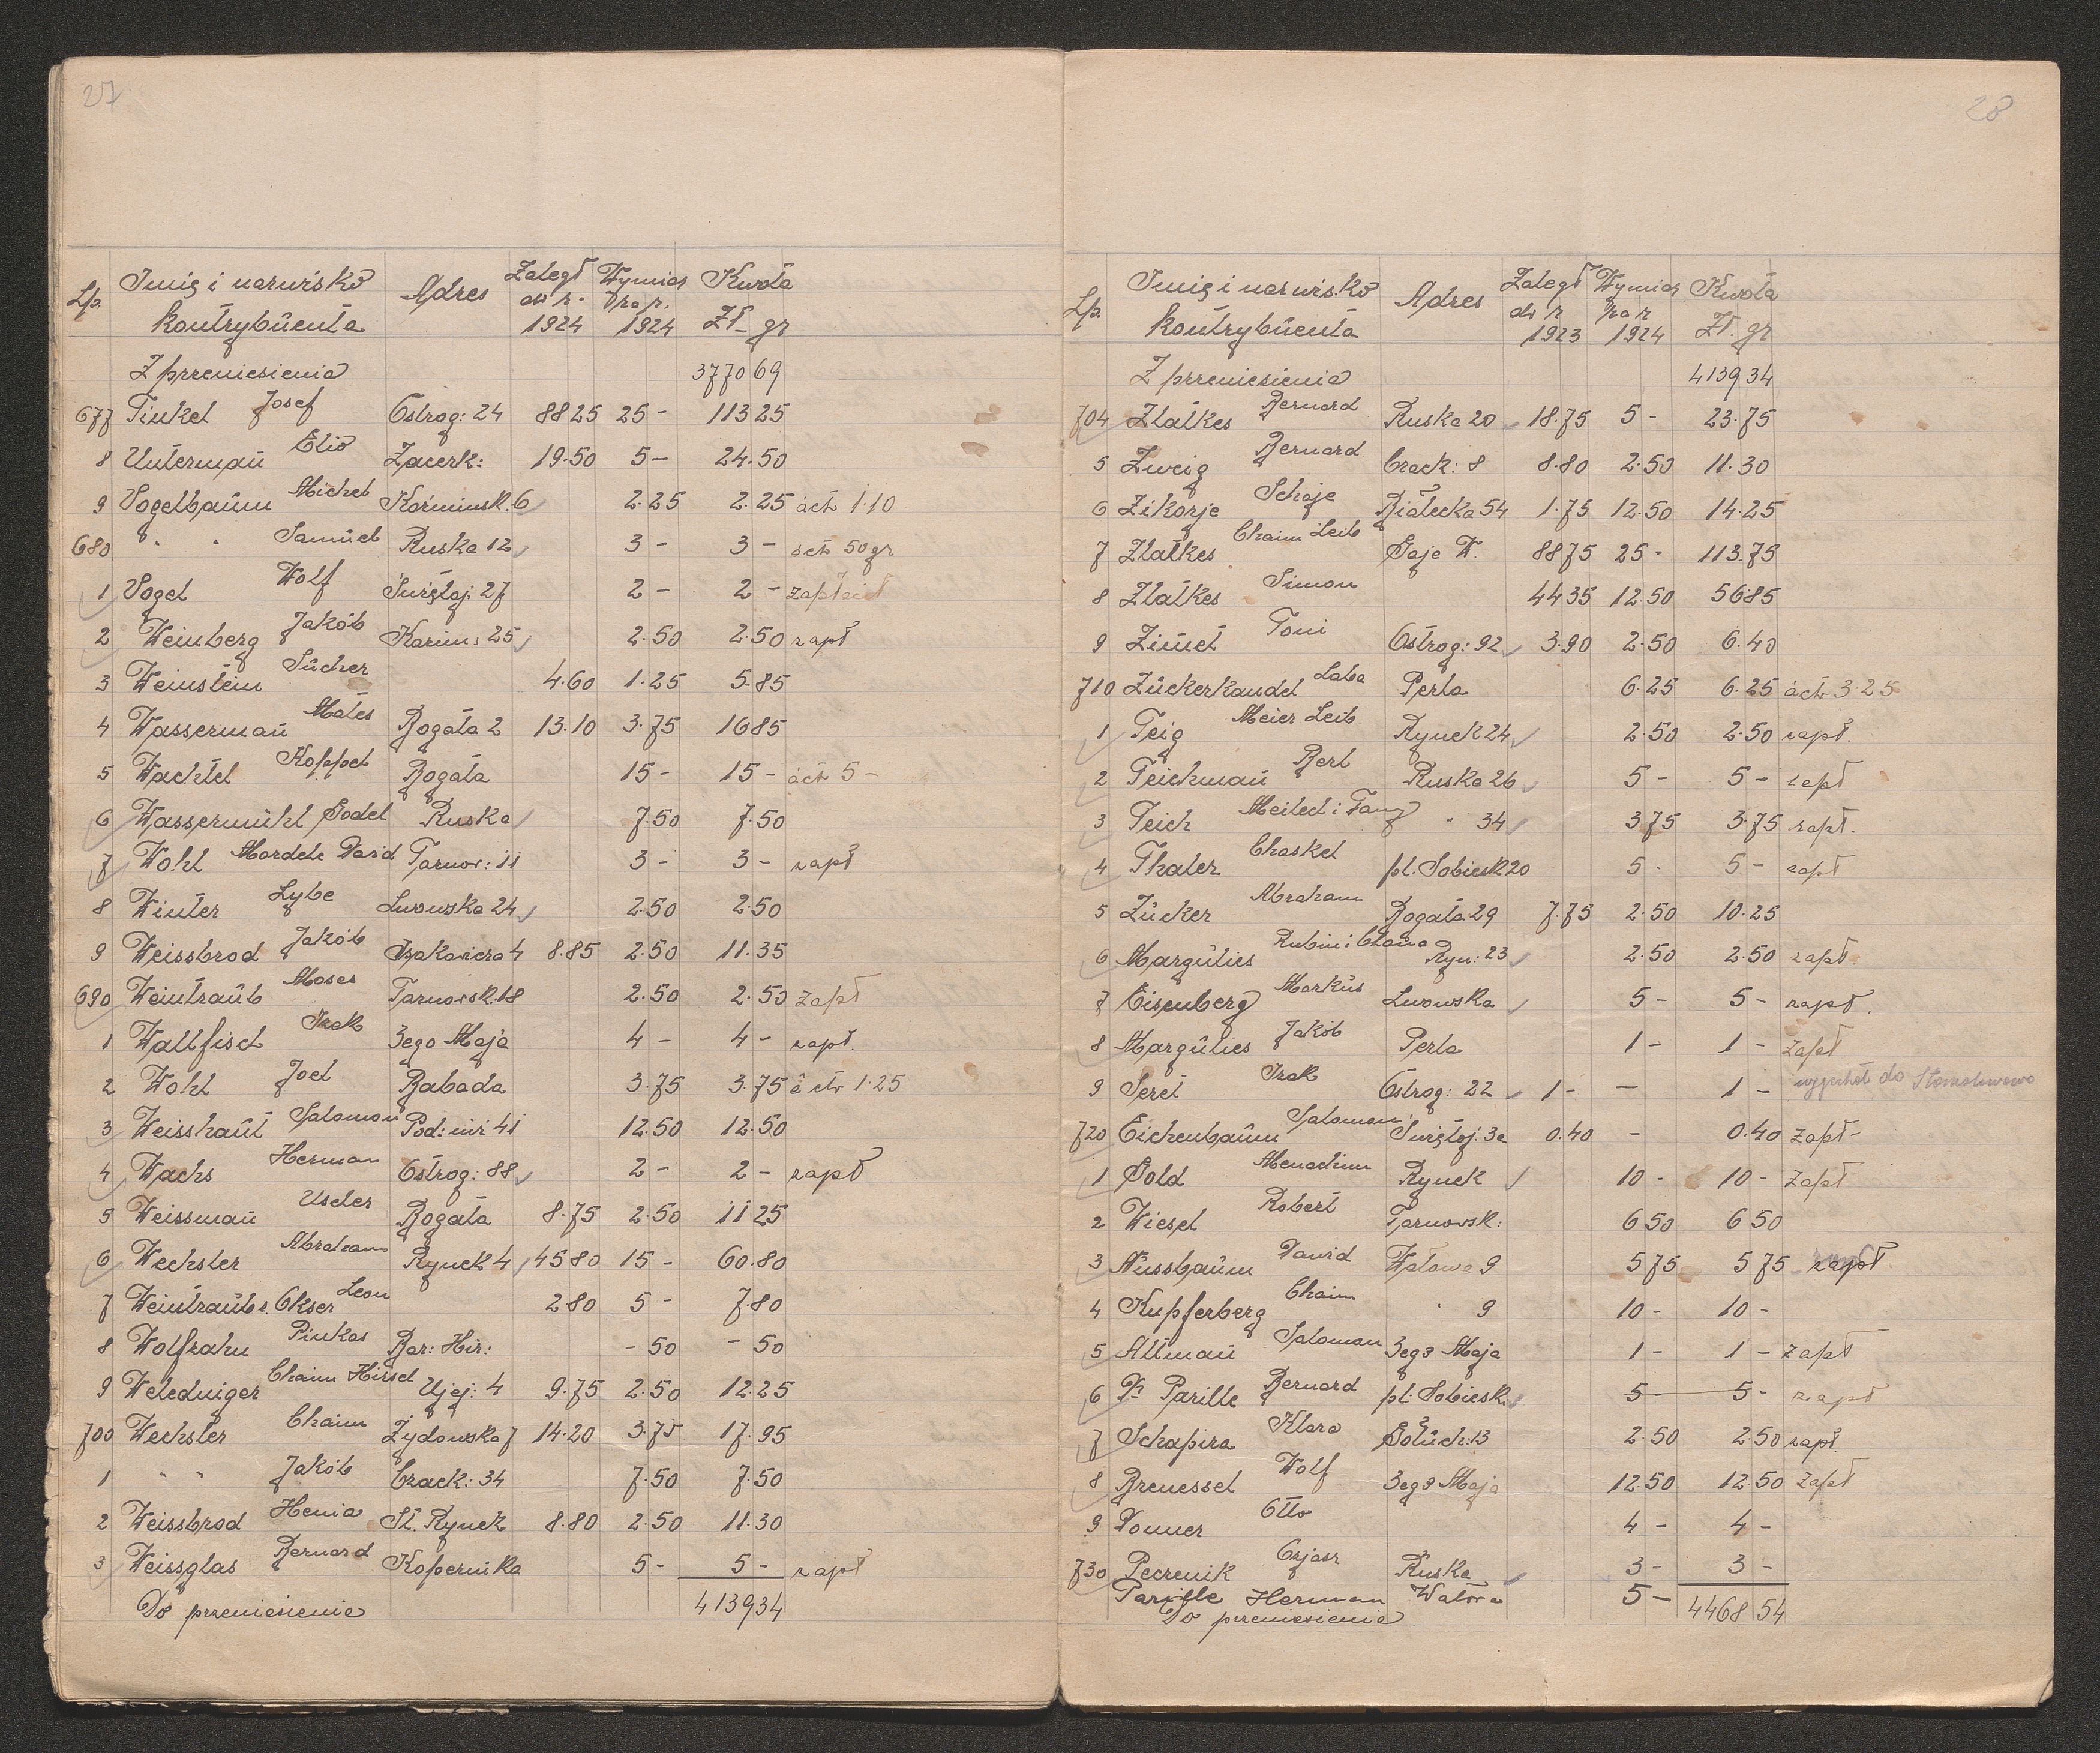 27
Lp. Imię i nazwisko kontrybuenta Adres Zaległ do r. 1924 Wymiar za r. 1924 Kwota Zł gr
Z przeniesienia 3770 69
677 Tinkel Josef Ostrog: 24 88 25 25 - 113 25
8 Unterman Elio Zacerk: 19.50 5 - 24.50
9 Vogelbaum Michel Kormińsk. 6 2.25 2.25 à cto 1.10
680 " " Samuel Ruska 12 3 - 3 - à cto 50 gr
1 Vogel Wolf Świętoj: 27 2 - 2 - zapłacił
2 Weinberg Jakób Karim: 25 2.50 2.50 zapł
3 Weinstein Sücher 4.60 1.25 5.85
4 Wasserman Mates Bogata 2 13.10 3.75 16 85
5 Wachtel Koppel Bogata 15 - 15 - à cto 5 -
6 Wassermühl Godel Ruska 7.50 7.50
7 Wohl Mordche David Tarnow: 11 3 - 3 - zapł
8 Winter Lybe Lwowska 24 2.50 2.50
9 Weissbrod Jakób 4 8.85 2.50 11.35
690 Weintraub Moses Tarnowsk. 18 2.50 2.50 zapł
1 Wallfisch Izak 3ego Maja 4 - 4 - zapł.
2 Wohl Joel Babada 3.75 3.75 à cto 1.25
3 Weisshaut Salomon 41 12.50 12.50
4 Wachs Herman Ostrog: 88 2 - 2 - zapł
5 Weissman Uscher Bogata 8.75 2.50 11 25
6 Wechsler Abraham Rynek 4 45 80 15 - 60.80
7 Weintraub r. Okser Leon 2 80 5 - 7.80
8 Wolfzahn Pinkas Bar: Hir: - 50 - 50
9 Weledniger Chaim Hirsch Ujej: 4 9.75 2.50 12.25
700 Wechsler Chaim Żydowska 7 14.20 3.75 17.95
1 " " Jakób Czack: 34 7.50 7.50
2 Weissbrod Henia St. Rynek 8.80 2.50 11.30
3 Weissglas Bernard Kopernika 5 - 5 - zapł
Do przeniesienia 4139 34
28
Lp. Imię i nazwisko kontrybuenta Adres Zaległ do r 1923 Wymiar za r 1924 Kwota Zł. gr
Z przeniesienia 4139 34
704 Zlatkes Bernard Ruska 20 18.75 5 - 23.75
5 Zweig Bernard Czack: 8 8.80 2.50 11.30
6 Zikorje Schaje 54 1.75 12.50 14.25
7 Zlatkes Chaim Leib Gaje W. 88 75 25 - 113.75
8 Zlatkes Simon 44 35 12.50 56 85
9 Zimet Toni Ostrog: 92 3.90 2.50 6.40
710 Zückerkandel Laba Perla 6.25 6.25 à cto 3.25
1 Teig Meier Leib Rynek 24 2.50 2.50 zapł.
2 Teichman Berl Ruska 26 5 - 5 - zapł
3 Teich Meilech i Fany " 34 3 75 3.75 zapł.
4 Thaler Chaskel pl. Sobiesk 20 5 - 5 - zapł
5 Zücker Abraham Bogata 29 7.75 2.50 10.25
6 Margülies Rubin i Chana Ryn: 23 2.50 2.50 zapł.
7 Eisenberg Markus Lwowska 5 - 5 - zapł.
8 Margülies Jakób Perla 1 - 1 - zapł
9 Seret Izak Ostrog: 22 1 - — 1 - wyjechał do Stanisławowa
720 Eichenbaum Salomon Świętoj. 3a 0.40 - 0.40 zapł -
1 Gold Menachim Rynek 10 - 10 - zapł
2 Wiesel Robert Tarnowsk: 6 50 6 50
3 Nussbaum Dawid Wałowa 9 5 75 5 75 zapł
4 Kupferberg Chaim " 9 10 - 10 -
5 Altman Salomon 3ego Maja 1 - 1 - zapł
6 Dr Parille Bernard pl. Sobiesk. 5 - 5 - zapł
7 Schapira Klara Gołuch: 13 2.50 2.50 zapł.
8 Brenessel Wolf 3ego Maja 12.50 12.50 zapł
9 Donner Otto 4 - 4 -
730 Peczenik Ruska 3 - 3 -
Parille Herman Wałowa 5 -
Do przeniesienia 4468 54